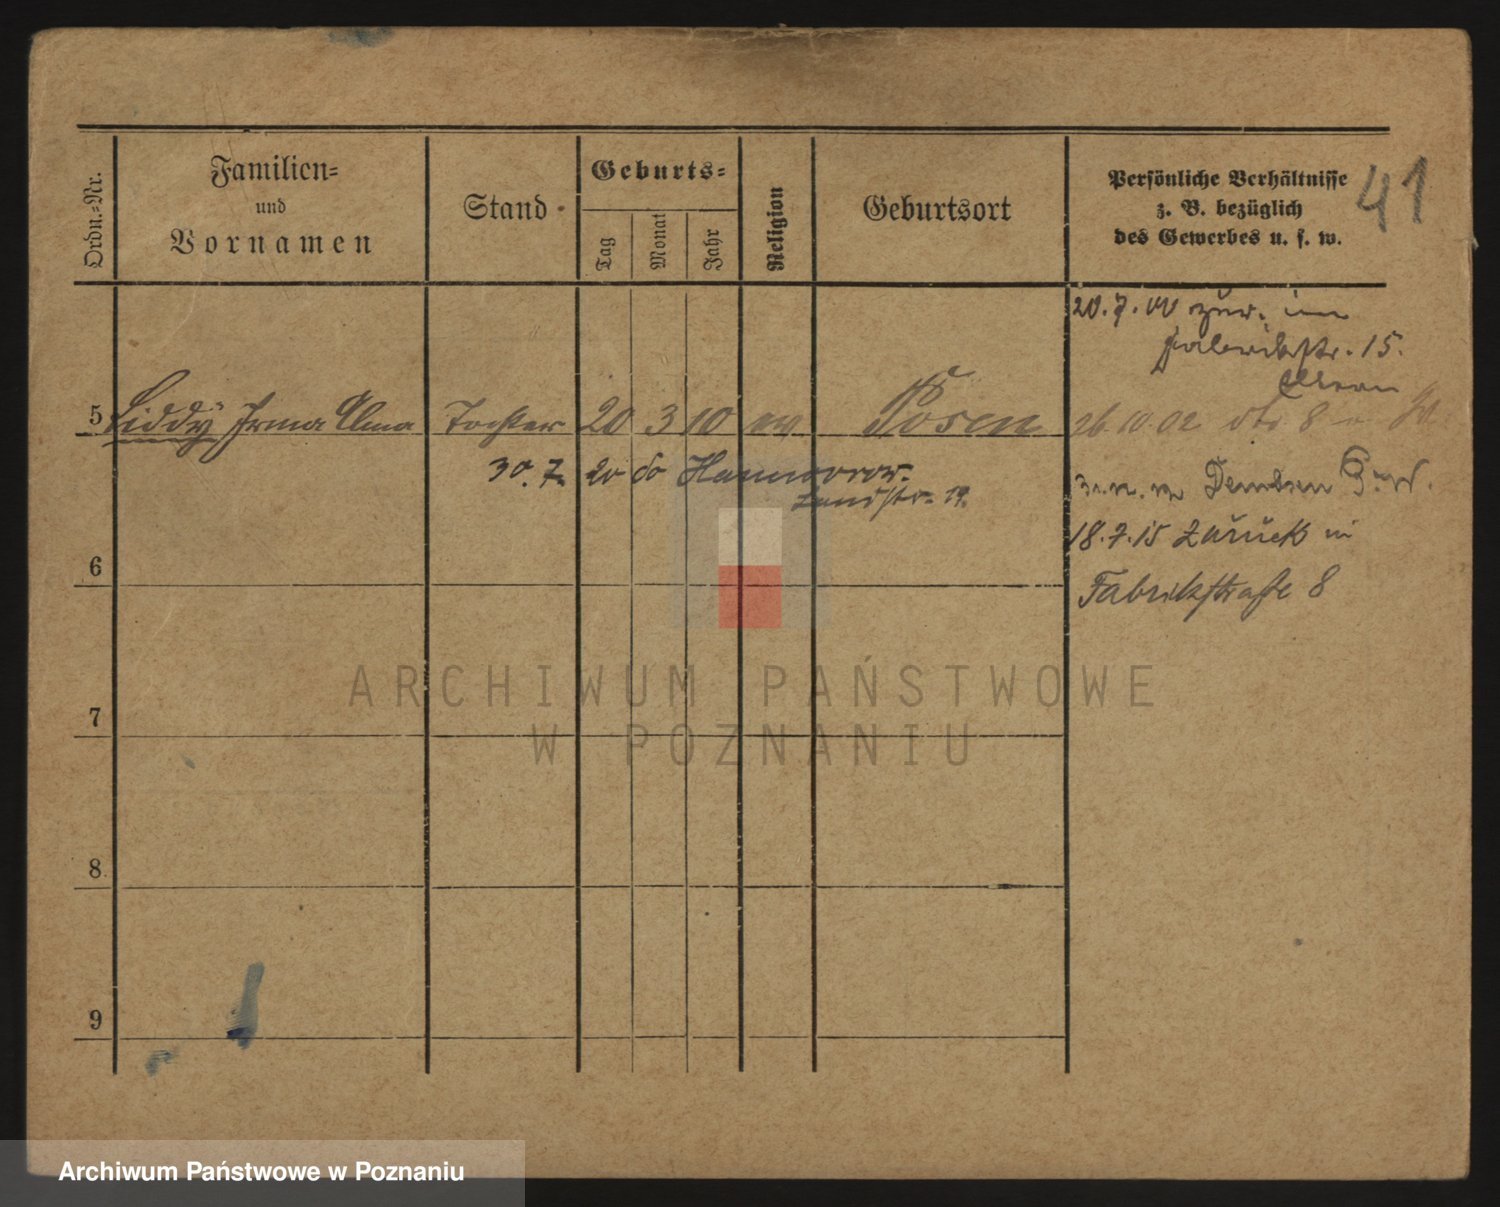 Ordn.=Nr.
Familien=
und
Vornamen
Stand
Geburts=
Tag
Monat
Jahr
Religion
Geburtsort
Persönliche Verhältnisse
z. B. bezüglich
des Gewerbes u. s. w.
41
20.7.
15.
5 Liddy Irma Alma Tochter 20 3 10 ev Posen
26 02 8
30. 7. 20 Hannover
Landstr. 19.
18.7.15 zurück in
6
Fabrikstraße 8
ARCHIWUM PAŃSTWOWE
W POZNANIU
7
8
9
Archiwum Państwowe w Poznaniu